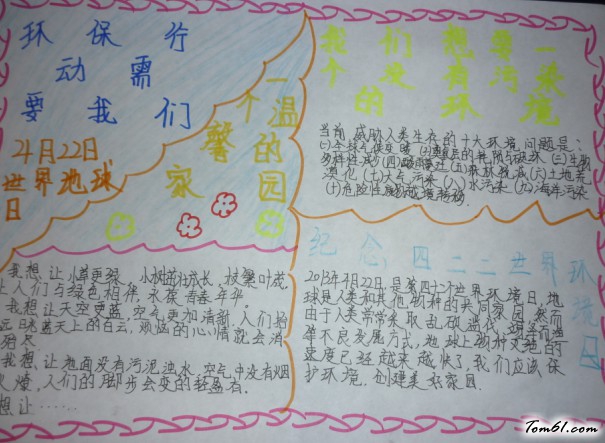 环保行
动需
要我们
一
个温
馨的
家园
4月22日
世界地球
日
我们想要一
个没有污染
的环境
当前,威胁人类生存的十大环境问题是:
(一)全球气候变暖(二)臭氧层的耗损与破坏(三)生物
多样性减少(四)酸雨蔓延(五)森林锐减(六)土地荒
漠化(七)大气污染(八)水污染(九)海洋污染
(十)危险性废物越境转移
我想让小草更绿,小树茁壮成长,枝繁叶茂
让人们与绿色相伴,永保青春年华。
我想让天空更蓝,空气更加清新,人们抬
远眺蓝天上的白云,烦恼的心情就会消
我想让地面没有污泥浊水,空气中没有烟
人们的脚步会变的轻盈有
想让……
纪念四二二世界环
境日
2013年4月22日,是第四十个世界环境日,地
球是人类和其他物种的共同家园,然而
由于人类常常采取乱砍滥伐
等不良发展方式,地球上物种灭绝的
速度已经越来越快了,我们应该保
护环境,创建美好家园
Tom61.com